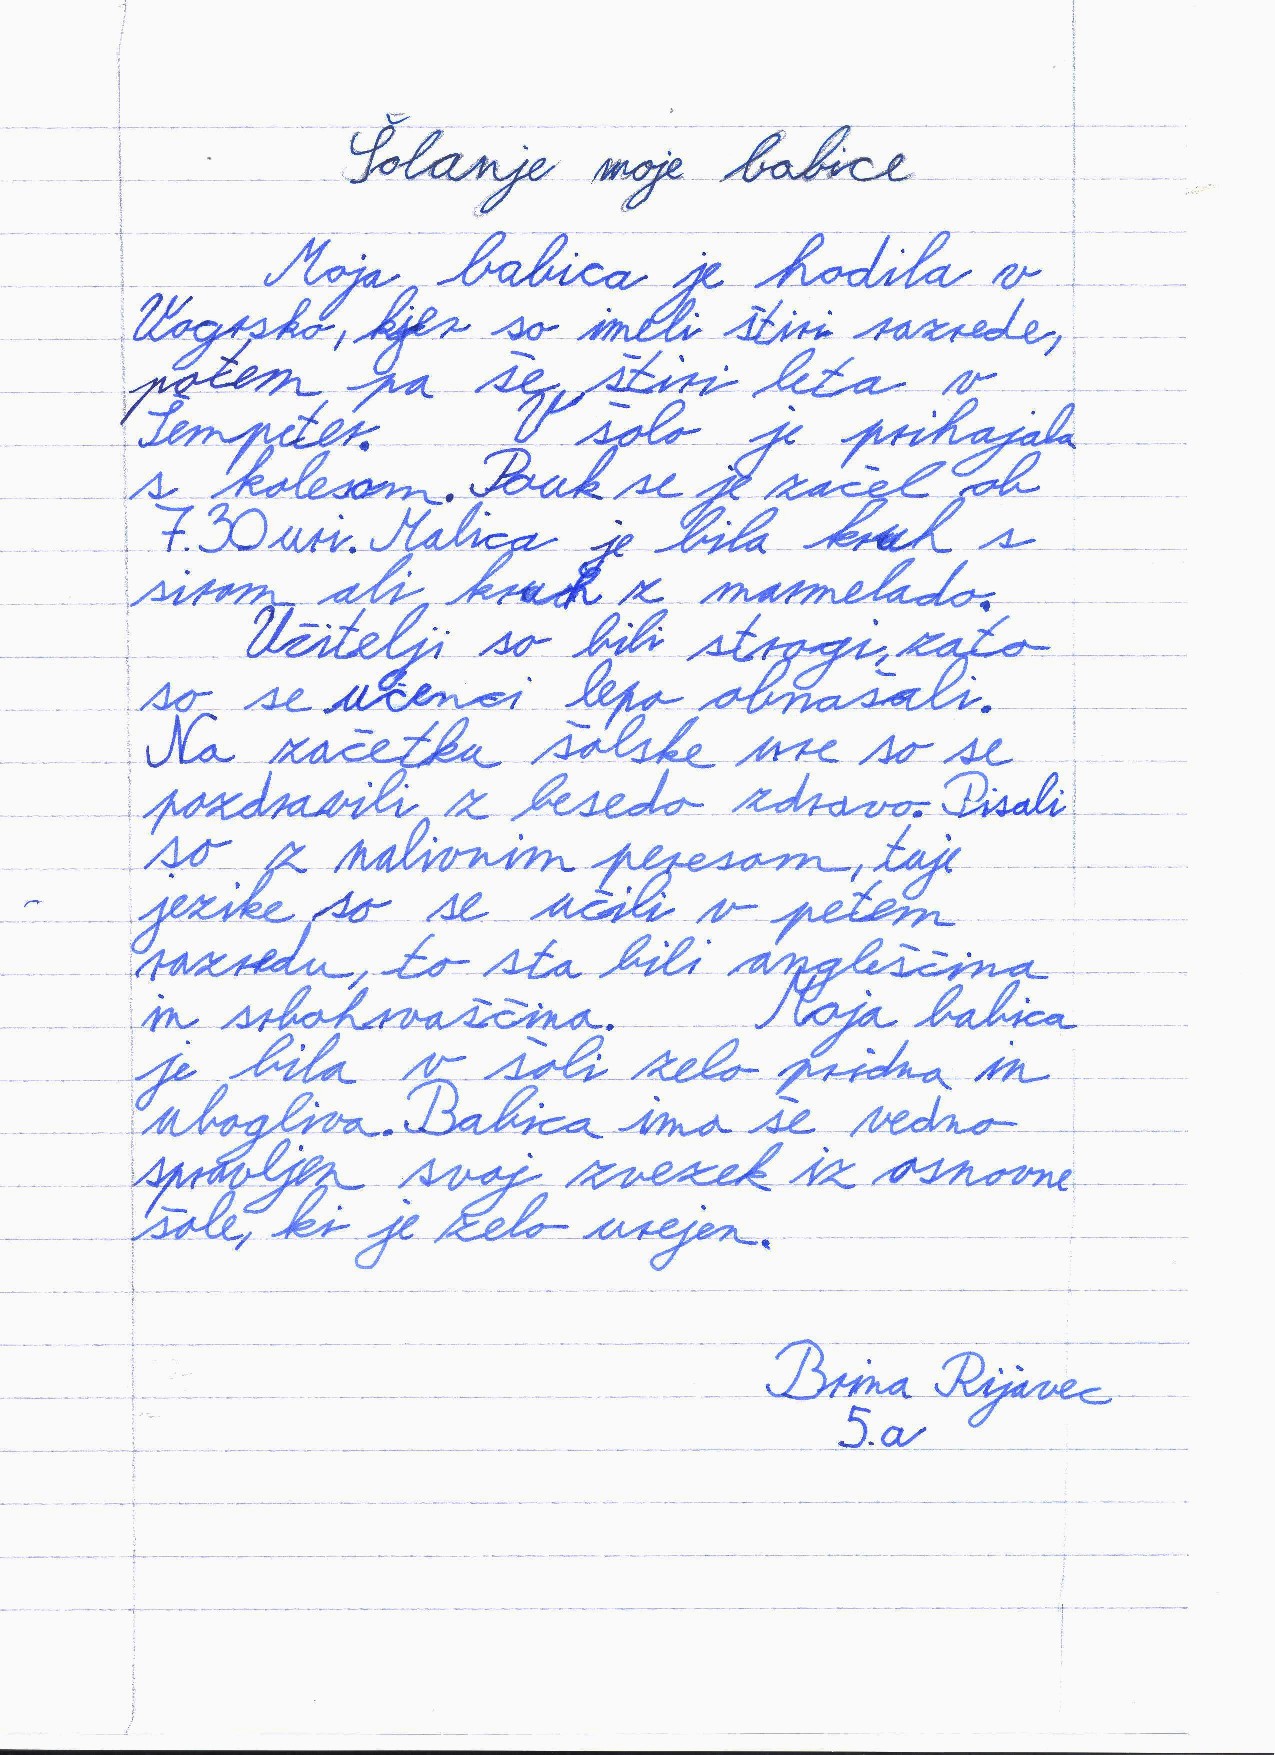 Šolanje moje babice
Moja babica je hodila v
Vogrsko, kjer so imeli štiri razrede,
potem pa še štiri leta v
Šempeter. V šolo je prihajala
s kolesom. Pouk se je začel ob
7.30 uri. Malica je bila kruh s
sirom ali kruh z marmelado.
Učitelji so bili strogi, zato
so se učenci lepo obnašali.
Na začetku šolske ure so se
pozdravili z besedo zdravo. Pisali
so z nalivnim peresom, tuje
jezike so se učili v petem
razredu, to sta bili angleščina
in srbohrvaščina. Moja babica
je bila v šoli zelo pridna in
ubogliva. Babica ima še vedno
spravljen svoj zvezek iz osnovne
šole, ki je zelo urejen.
Brina Rijavec
5.a